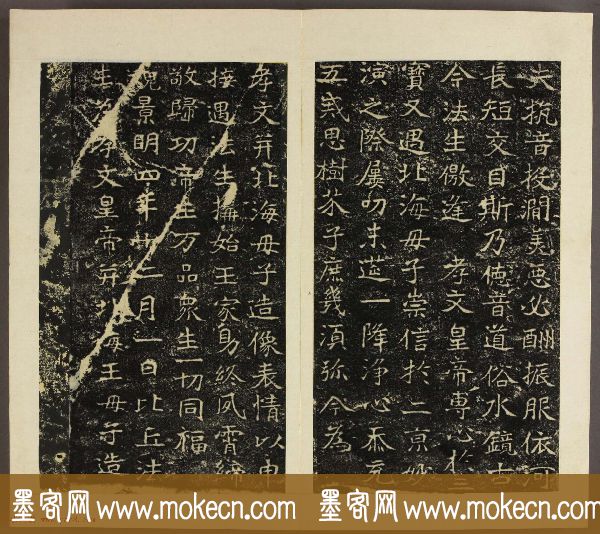 夫抗音投澗美惡必酬振服依河
長短交目斯乃德音道俗水鏡古
今法生儌逢 孝文皇帝專心於三
寶又遇北海母子崇信於二京妙
演之際屢叨末筵一降淨心忝充
五戒思樹芥子庶幾須弥今為
孝文并北海母子造像表情以申
接遇法生構始王家助終夙霄締
敬歸功帝王万品眾生一切同福
魏景明四年十二月一日比丘法
生為孝文皇帝并北海王母子造
墨客网 www.mokecn.com 墨客网 www.mokecn.com